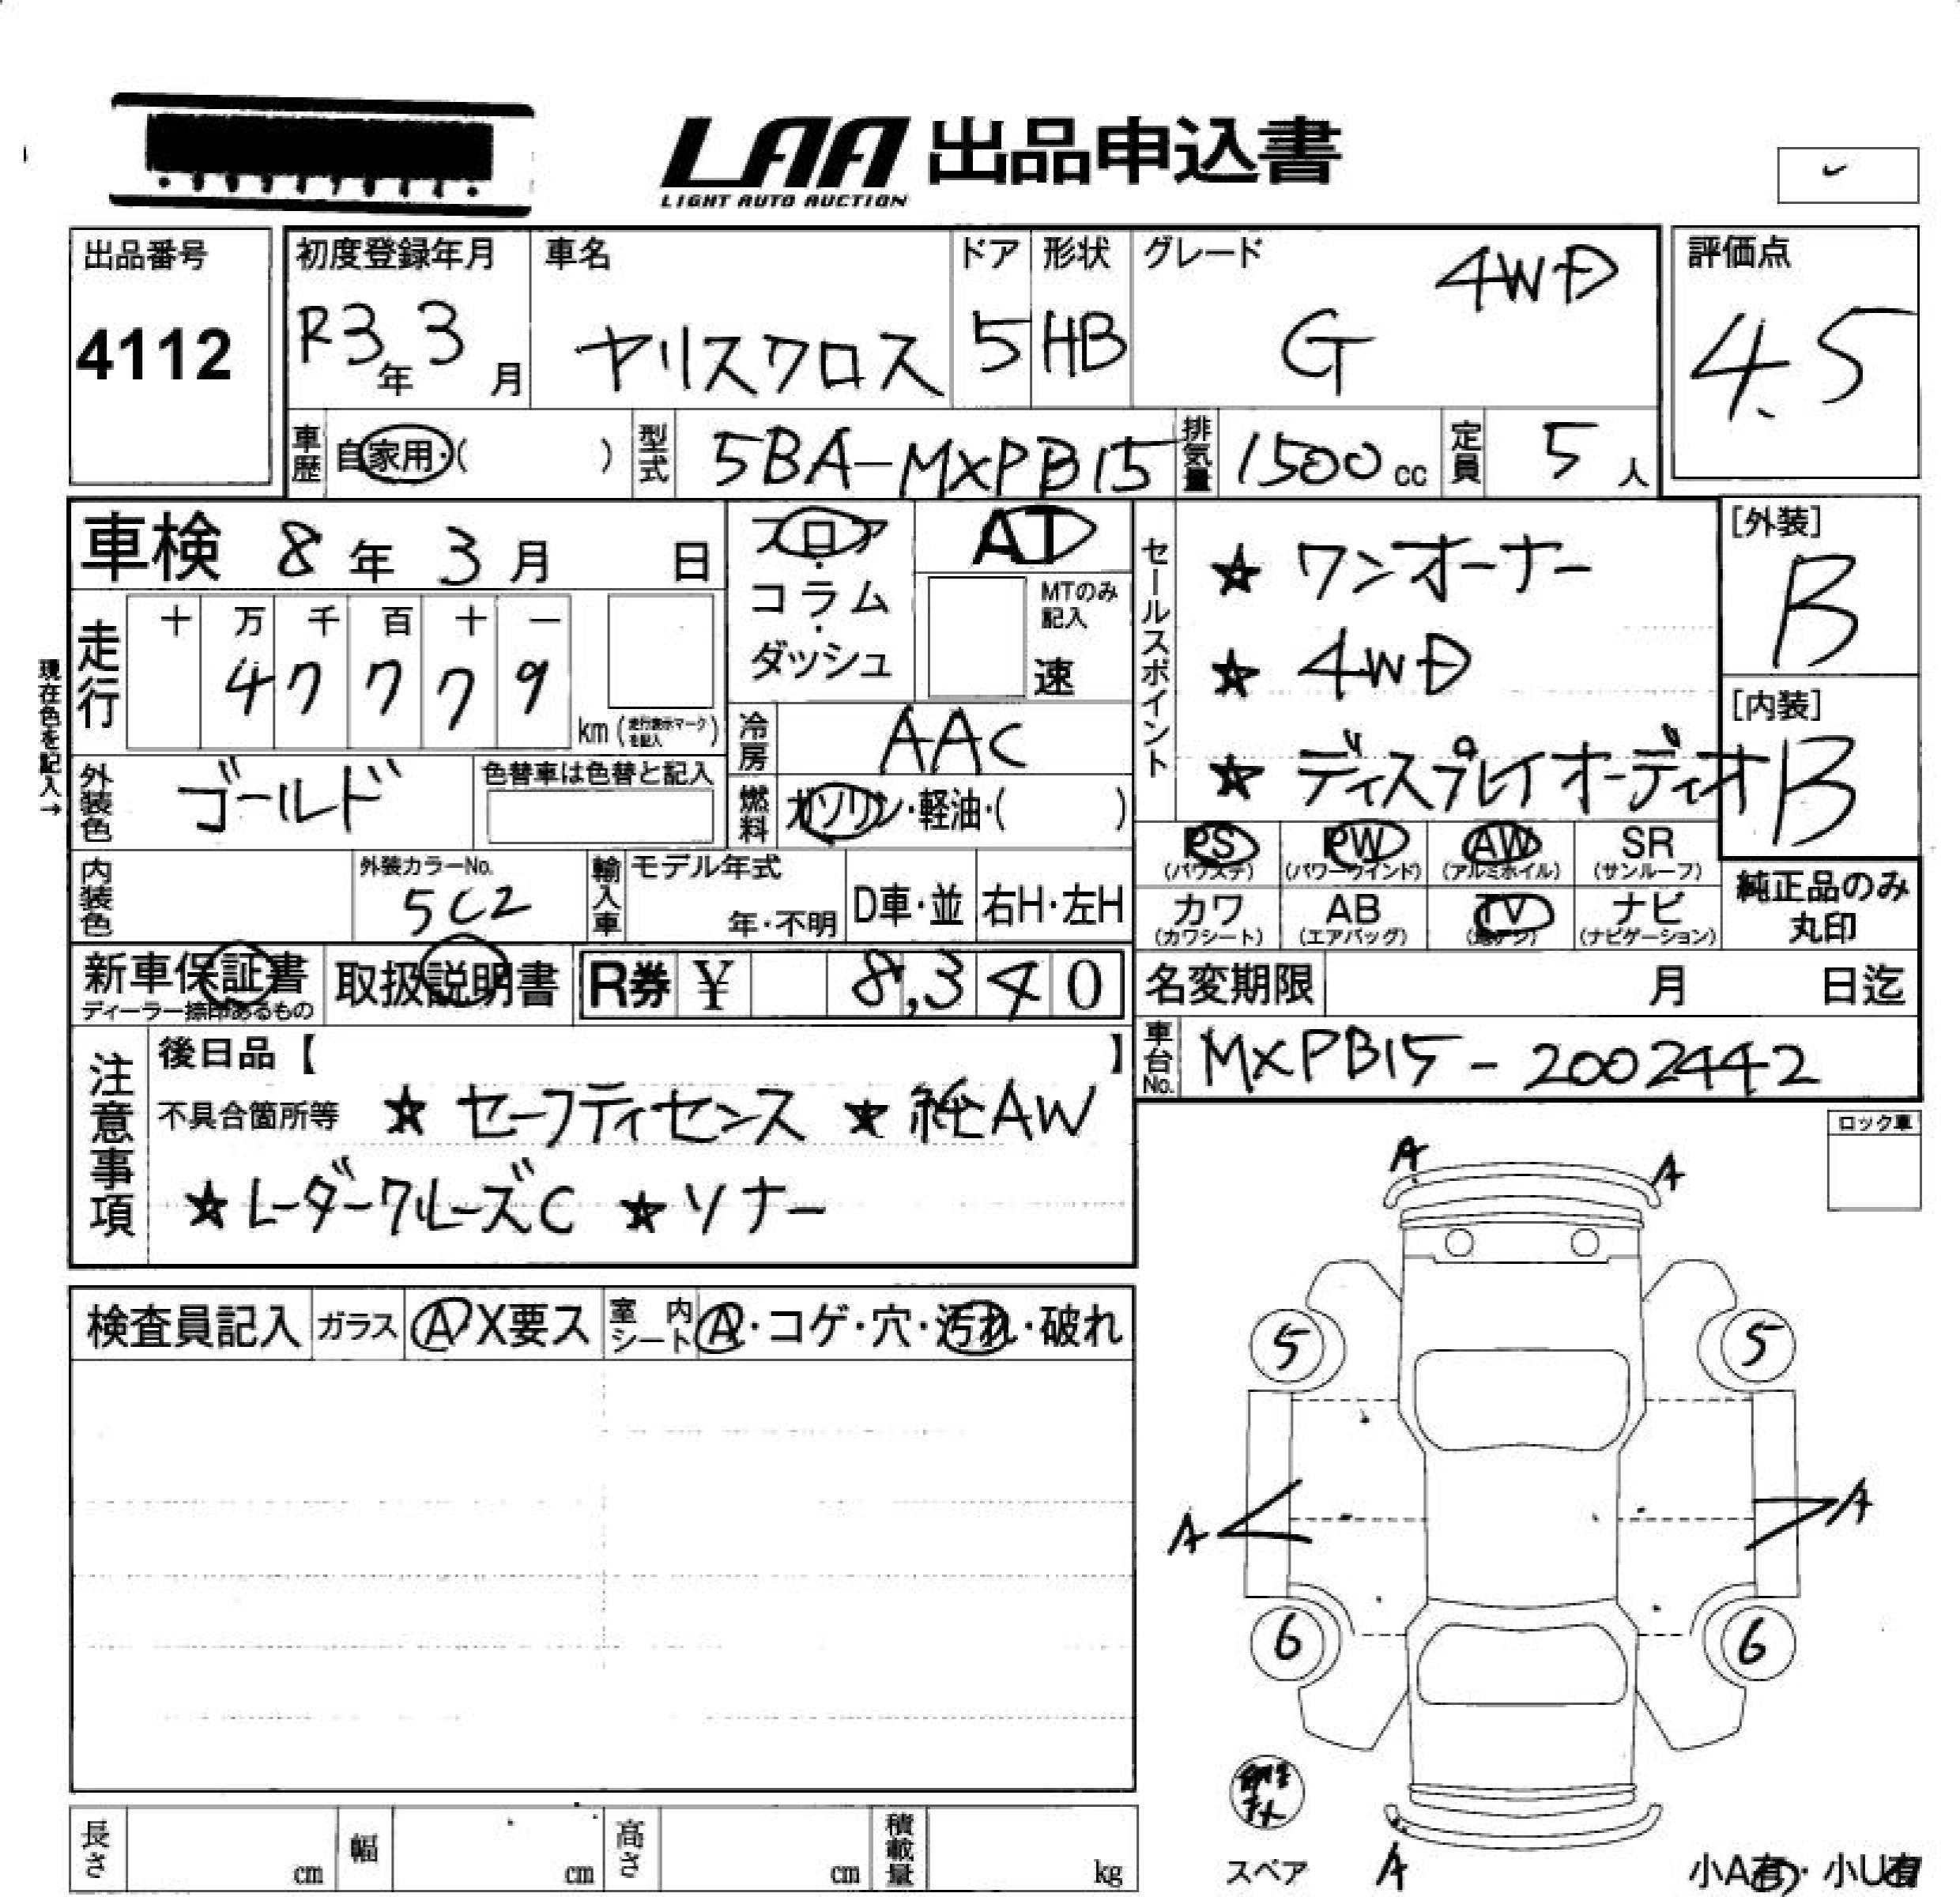 LAA 出品申込書
LIGHT AUTO AUCTION
出品番号
4112
初度登録年月
R3年 3月
車名
ヤリスクロス
ドア
5
形状
HB
グレード
G 4WD
評価点
4.5
車歴 自家用・( )
型式 5BA-MXPB15
排気量 1500cc
定員 5人
車検 8年 3月 日
フロア・コラム・ダッシュ
AT
MTのみ記入
速
セールスポイント
★ ワンオーナー
★ 4WD
★ ディスプレイオーディオ
[外装]
B
[内装]
B
現在色を記入→
走行
十 万 千 百 十 一
4 7 7 7 9
km (走行表示マークを記入)
冷房 AAC
外装色 ゴールド
色替車は色替と記入
燃料 ガソリン・軽油・( )
PS (パワステ)
PW (パワーウインド)
AW (アルミホイル)
SR (サンルーフ)
内装色
外装カラーNo.
5C2
輸入車
モデル年式
年・不明
D車・並
右H・左H
カワ (カワシート)
AB (エアバッグ)
TV (地デジ)
ナビ (ナビゲーション)
純正品のみ
丸印
新車保証書
ディーラー捺印あるもの
取扱説明書
R券 ¥ 8,340
名変期限 月 日迄
車台No. MXPB15-2002442
注意事項
後日品【 】
不具合箇所等 ★ セーフティセンス ★ 純AW
★レーダークルーズC ★ソナー
ロック車
A A
検査員記入
ガラス A X要ス
室内シート A・コゲ・穴・汚れ・破れ
5 5
A A
6 6
スペア
A
小A有・小U有
長さ cm
幅 cm
高さ cm
積載量 kg